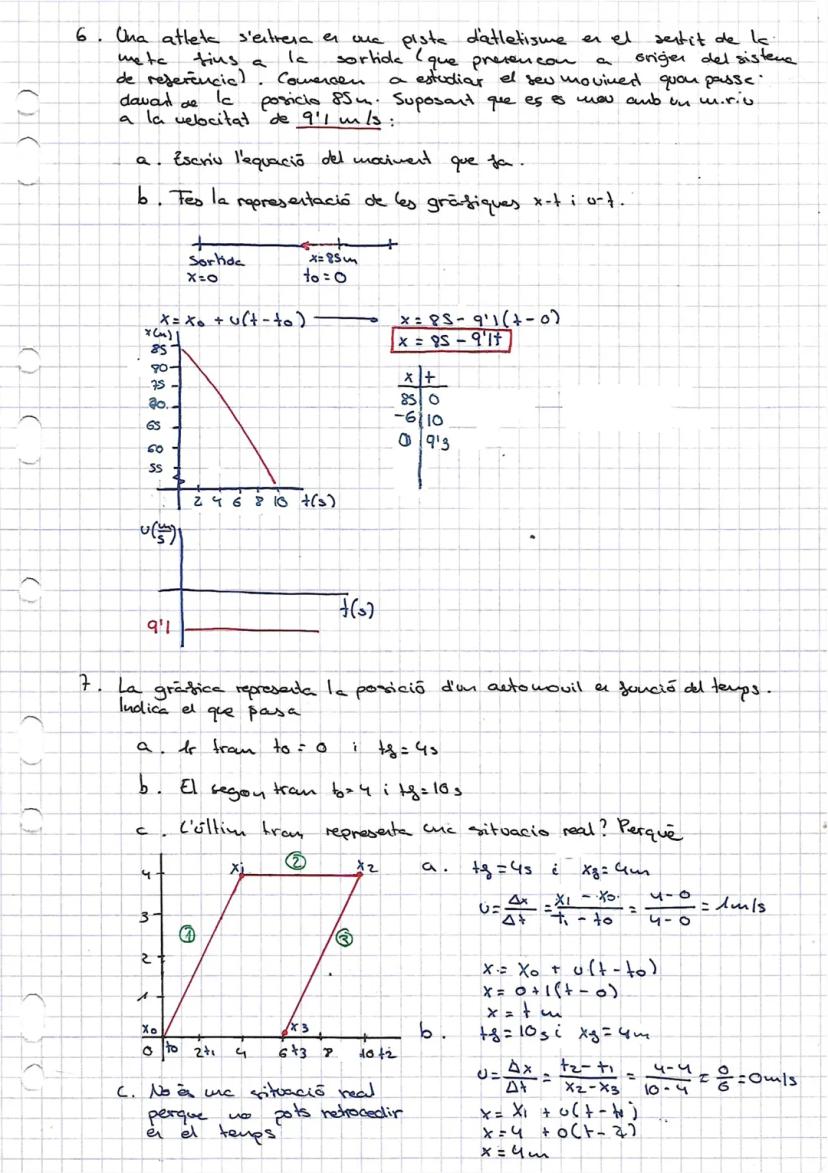 6. Una atleta s'entrena en una pista d'atletisme en el sentit de la
meta fins a la sortida (que prenencom a origen del sistema
de referència). Comencen a estudiar el seu moviment quan passa
davant de la posicio 85m. Suposant que es es mou amb un m.r.u
a la velocitat de 9'1 m/s:
a. Escriu l'equació del moviment que fa.
b. Fes la representació de les gràfiques x-t i v-t.
Sortida x=85m
x=0 t0=0
x = x0 + v(t-t0) x = 85 - 9'1(t-0)
x = 85 - 9'1t
x(m)
85
80
75
70
65
60
55
2 4 6 8 10 t(s)
x t
85 0
-6 10
0 9'3
v(m/s)
t(s)
9'1
7. La gràfica representa la posició d'un automovil en funció del temps.
Indica el que passa
a. 1r tram t0 = 0 i tf = 4s
b. El segon tram t0= 4 i tf=10s
c. L'últim tram representa una situacio real? Perquè
4 x1 ② x2
3
① ③
2
1
x0 x3
0 t0 2t1 4 6t3 8 10t2
a. tf = 4s i xf = 4m
v = Δx/Δt = x1 - x0/t1 - t0 = 4-0/4-0 = 1m/s
x = x0 + v(t-t0)
x = 0+1(t-0)
x = t m
b. tf = 10s i xf = 4m
v = Δx/Δt = t2-t1/x2-x3 = 4-4/10-4 = 0/6 = 0m/s
x = x1 + v(t-t1)
x = 4 + 0(t-2)
x = 4m
c. No és una situació real
perque no pots retrocedir
en el temps